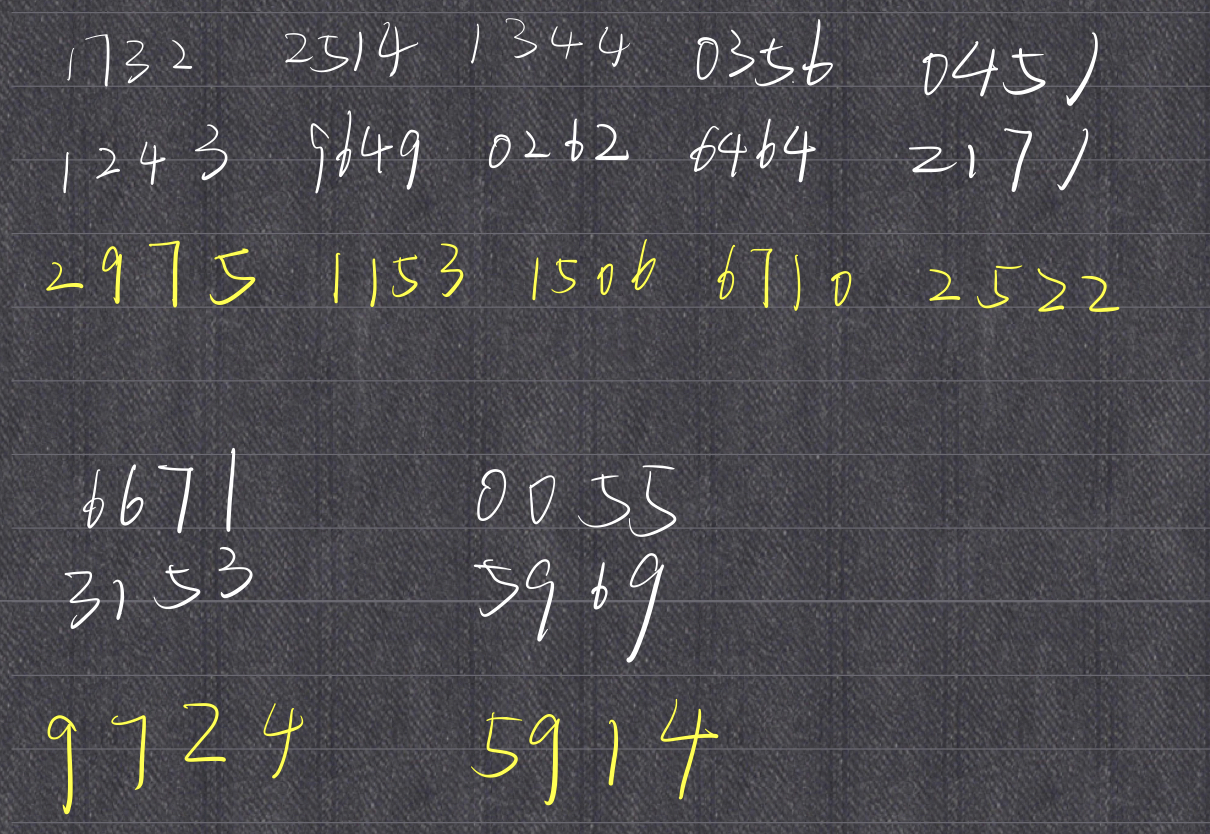 1732 2514 1344 0356 0451
1243 9649 0262 6464 2171
2975 1153 1506 6710 2522
6671 0055
3153 5969
9724 5914